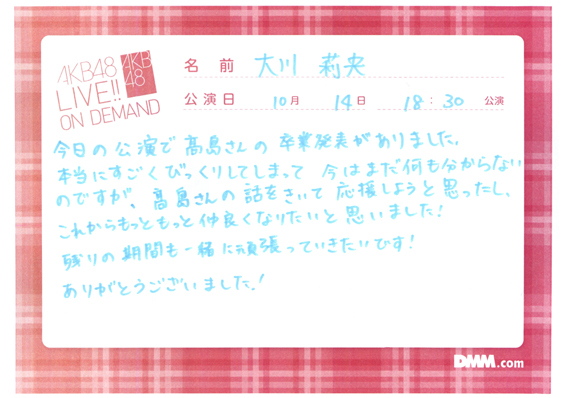 AKB48
LIVE!!
ON DEMAND
AKB
48
名前 大川 莉央
公演日 10月 14日 18:30 公演
今日の公演で髙島さんの卒業発表がありました。
本当にすごくびっくりしてしまって 今はまだ何も分からない
のですが、髙島さんの話をきいて応援しようと思ったし、
これからもっともっと仲良くなりたいと思いました!
残りの期間も一緒に頑張っていきたいです!
ありがとうございました!
DMM.com